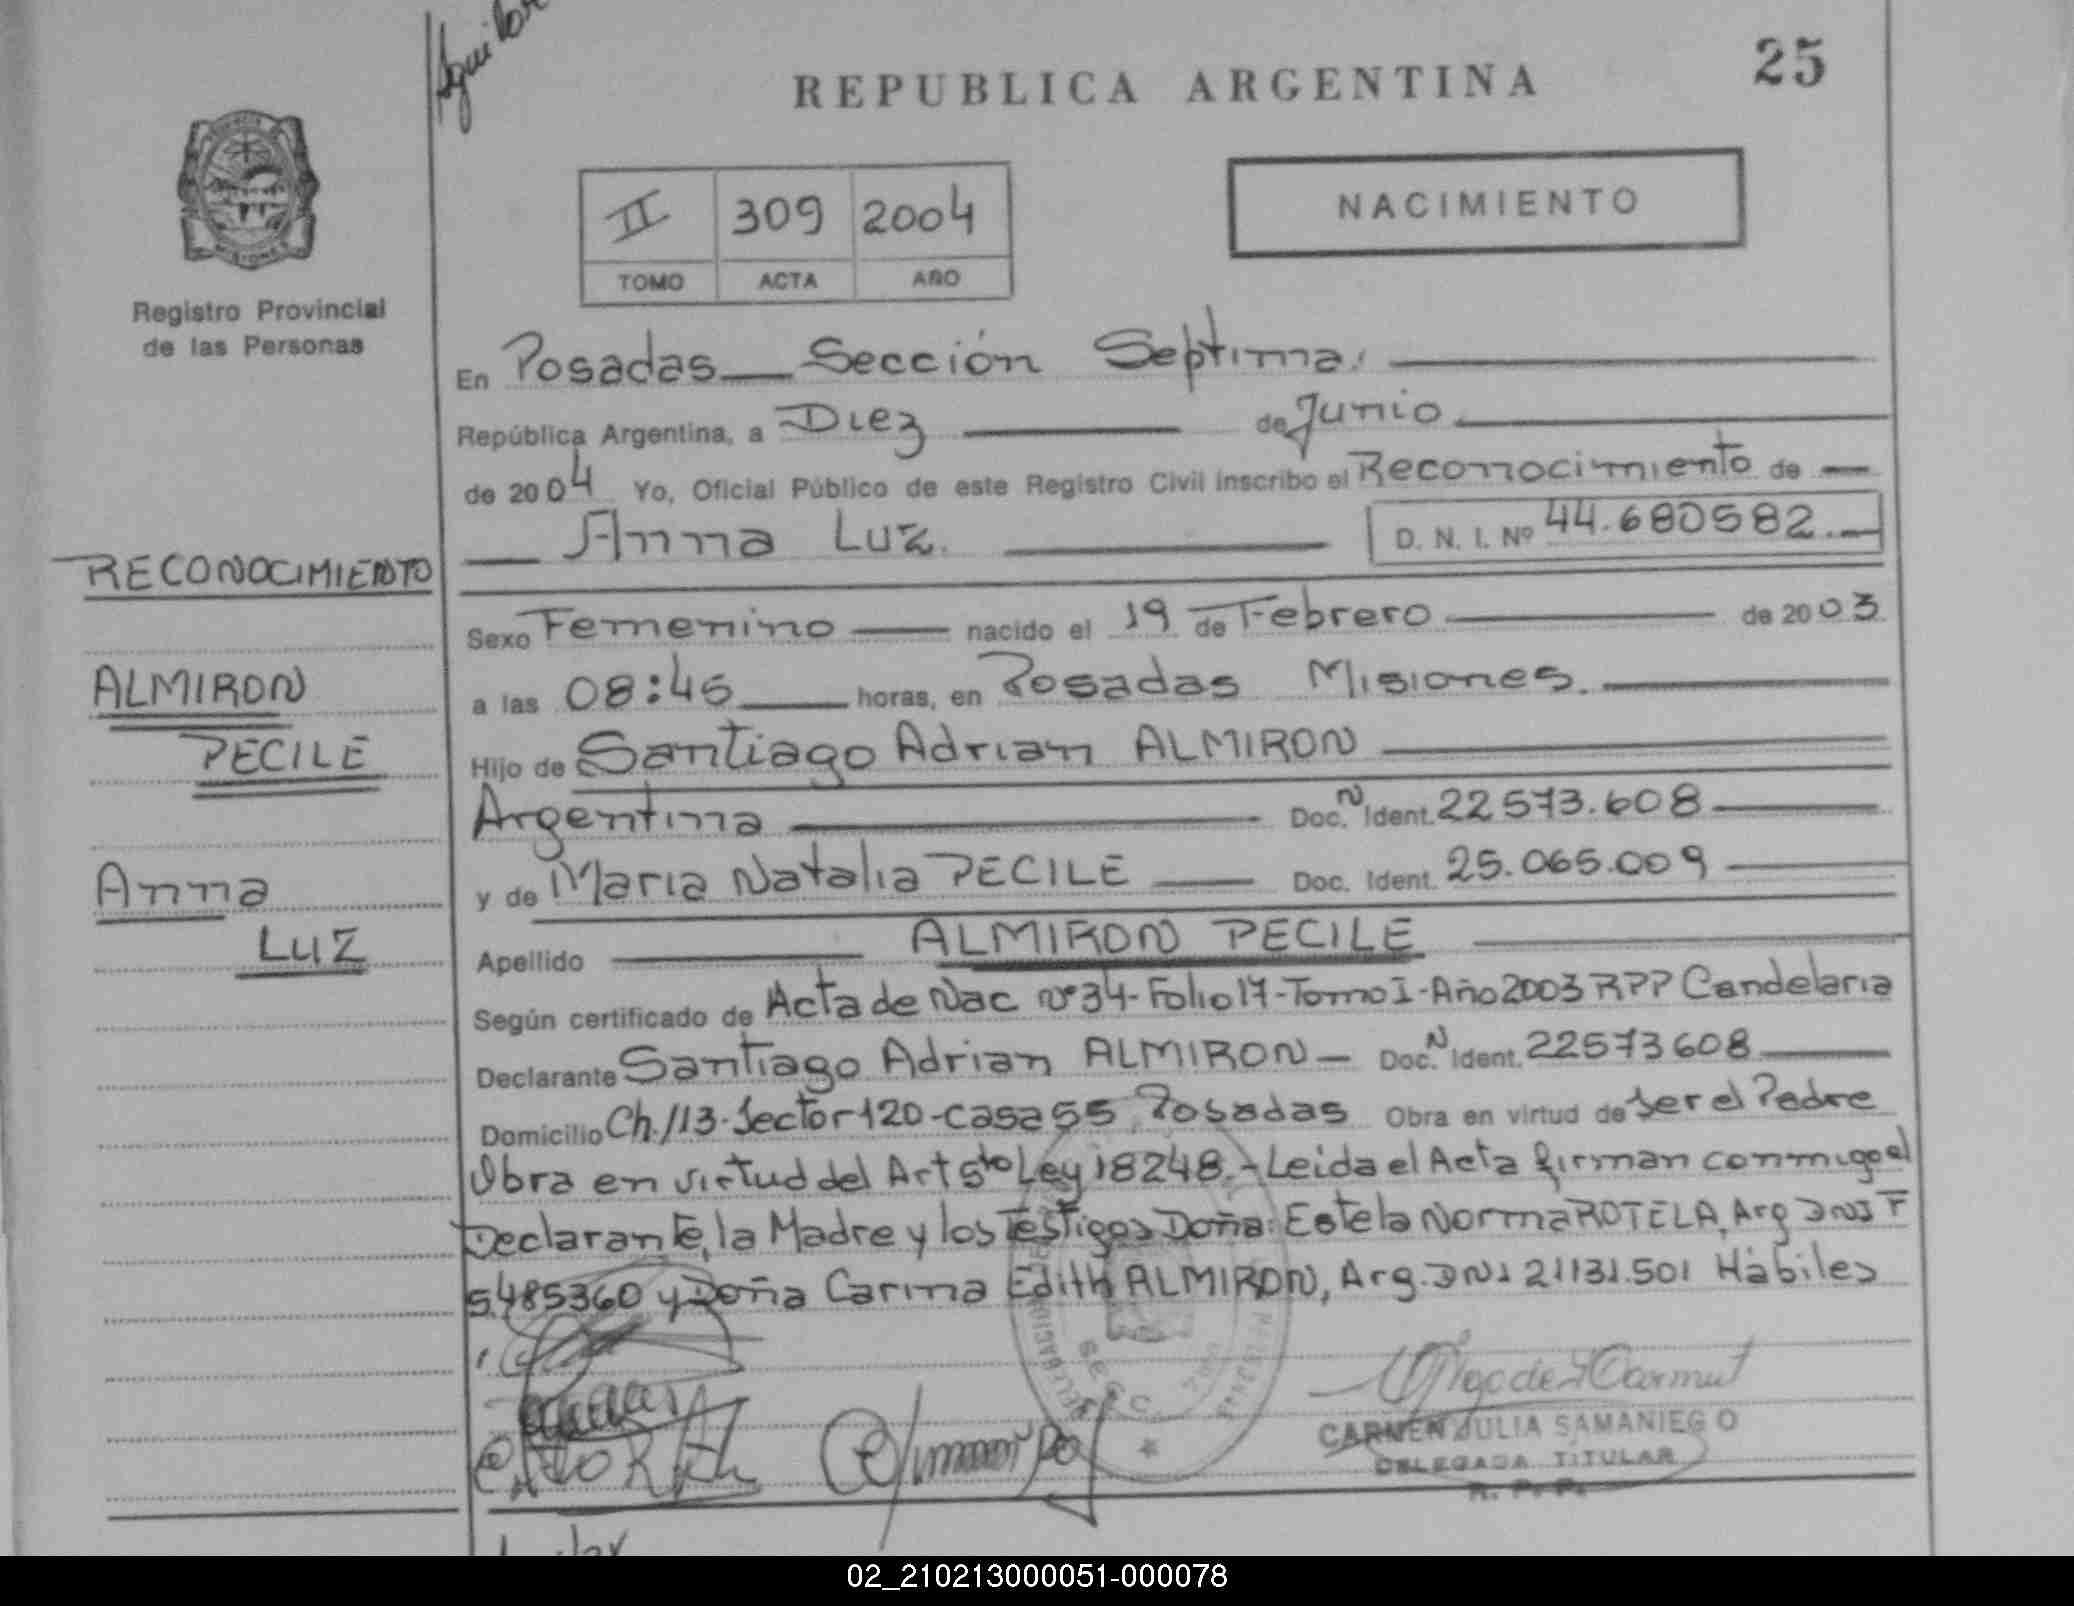 Aguilar
REPUBLICA ARGENTINA
25
II 309 2004
TOMO ACTA AÑO
NACIMIENTO
Registro Provincial
de las Personas
En Posadas Sección Septima.
República Argentina, a Diez de Junio
de 2004 Yo, Oficial Público de este Registro Civil inscribo el Reconocimiento de
Anna Luz. D. N. I. Nº 44.680582.
RECONOCIMIENTO
Sexo Femenino nacido el 19 de Febrero de 2003
a las 08:45 horas, en Posadas Misiones.
ALMIRON
PECILE
Hijo de Santiago Adrian ALMIRON
Argentina Doc. N Ident. 22573.608
y de Maria Natalia PECILE Doc. Ident. 25.065.009
Anna
LUZ
Apellido ALMIRON PECILE
Según certificado de Acta de Nac Nº 34-Folio 17-Tomo I-Año 2003 RPP Candelaria
Declarante Santiago Adrian ALMIRON Doc. N Ident. 22573608
Domicilio Ch. 113-Sector 120-casa 55 Posadas Obra en virtud de Ser el Padre
Obra en virtud del Art 5to Ley 18248.-Leida el Acta firman conmigo el
Declarante, la Madre y los Testigos Doña: Estela Norma ROTELA, Arg DNI F
5.485360 y Doña Carina Edith ALMIRON, Arg. DNI 21131.501 Hábiles
CARMEN JULIA SAMANIEGO
DELEGADA TITULAR
R. P. P.
02_210213000051-000078